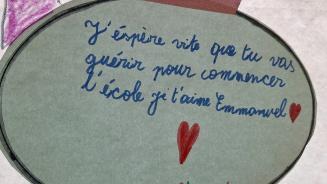 J'éspère vite que tu vas
guérir pour commencer
l'école je t'aime Emmanuel